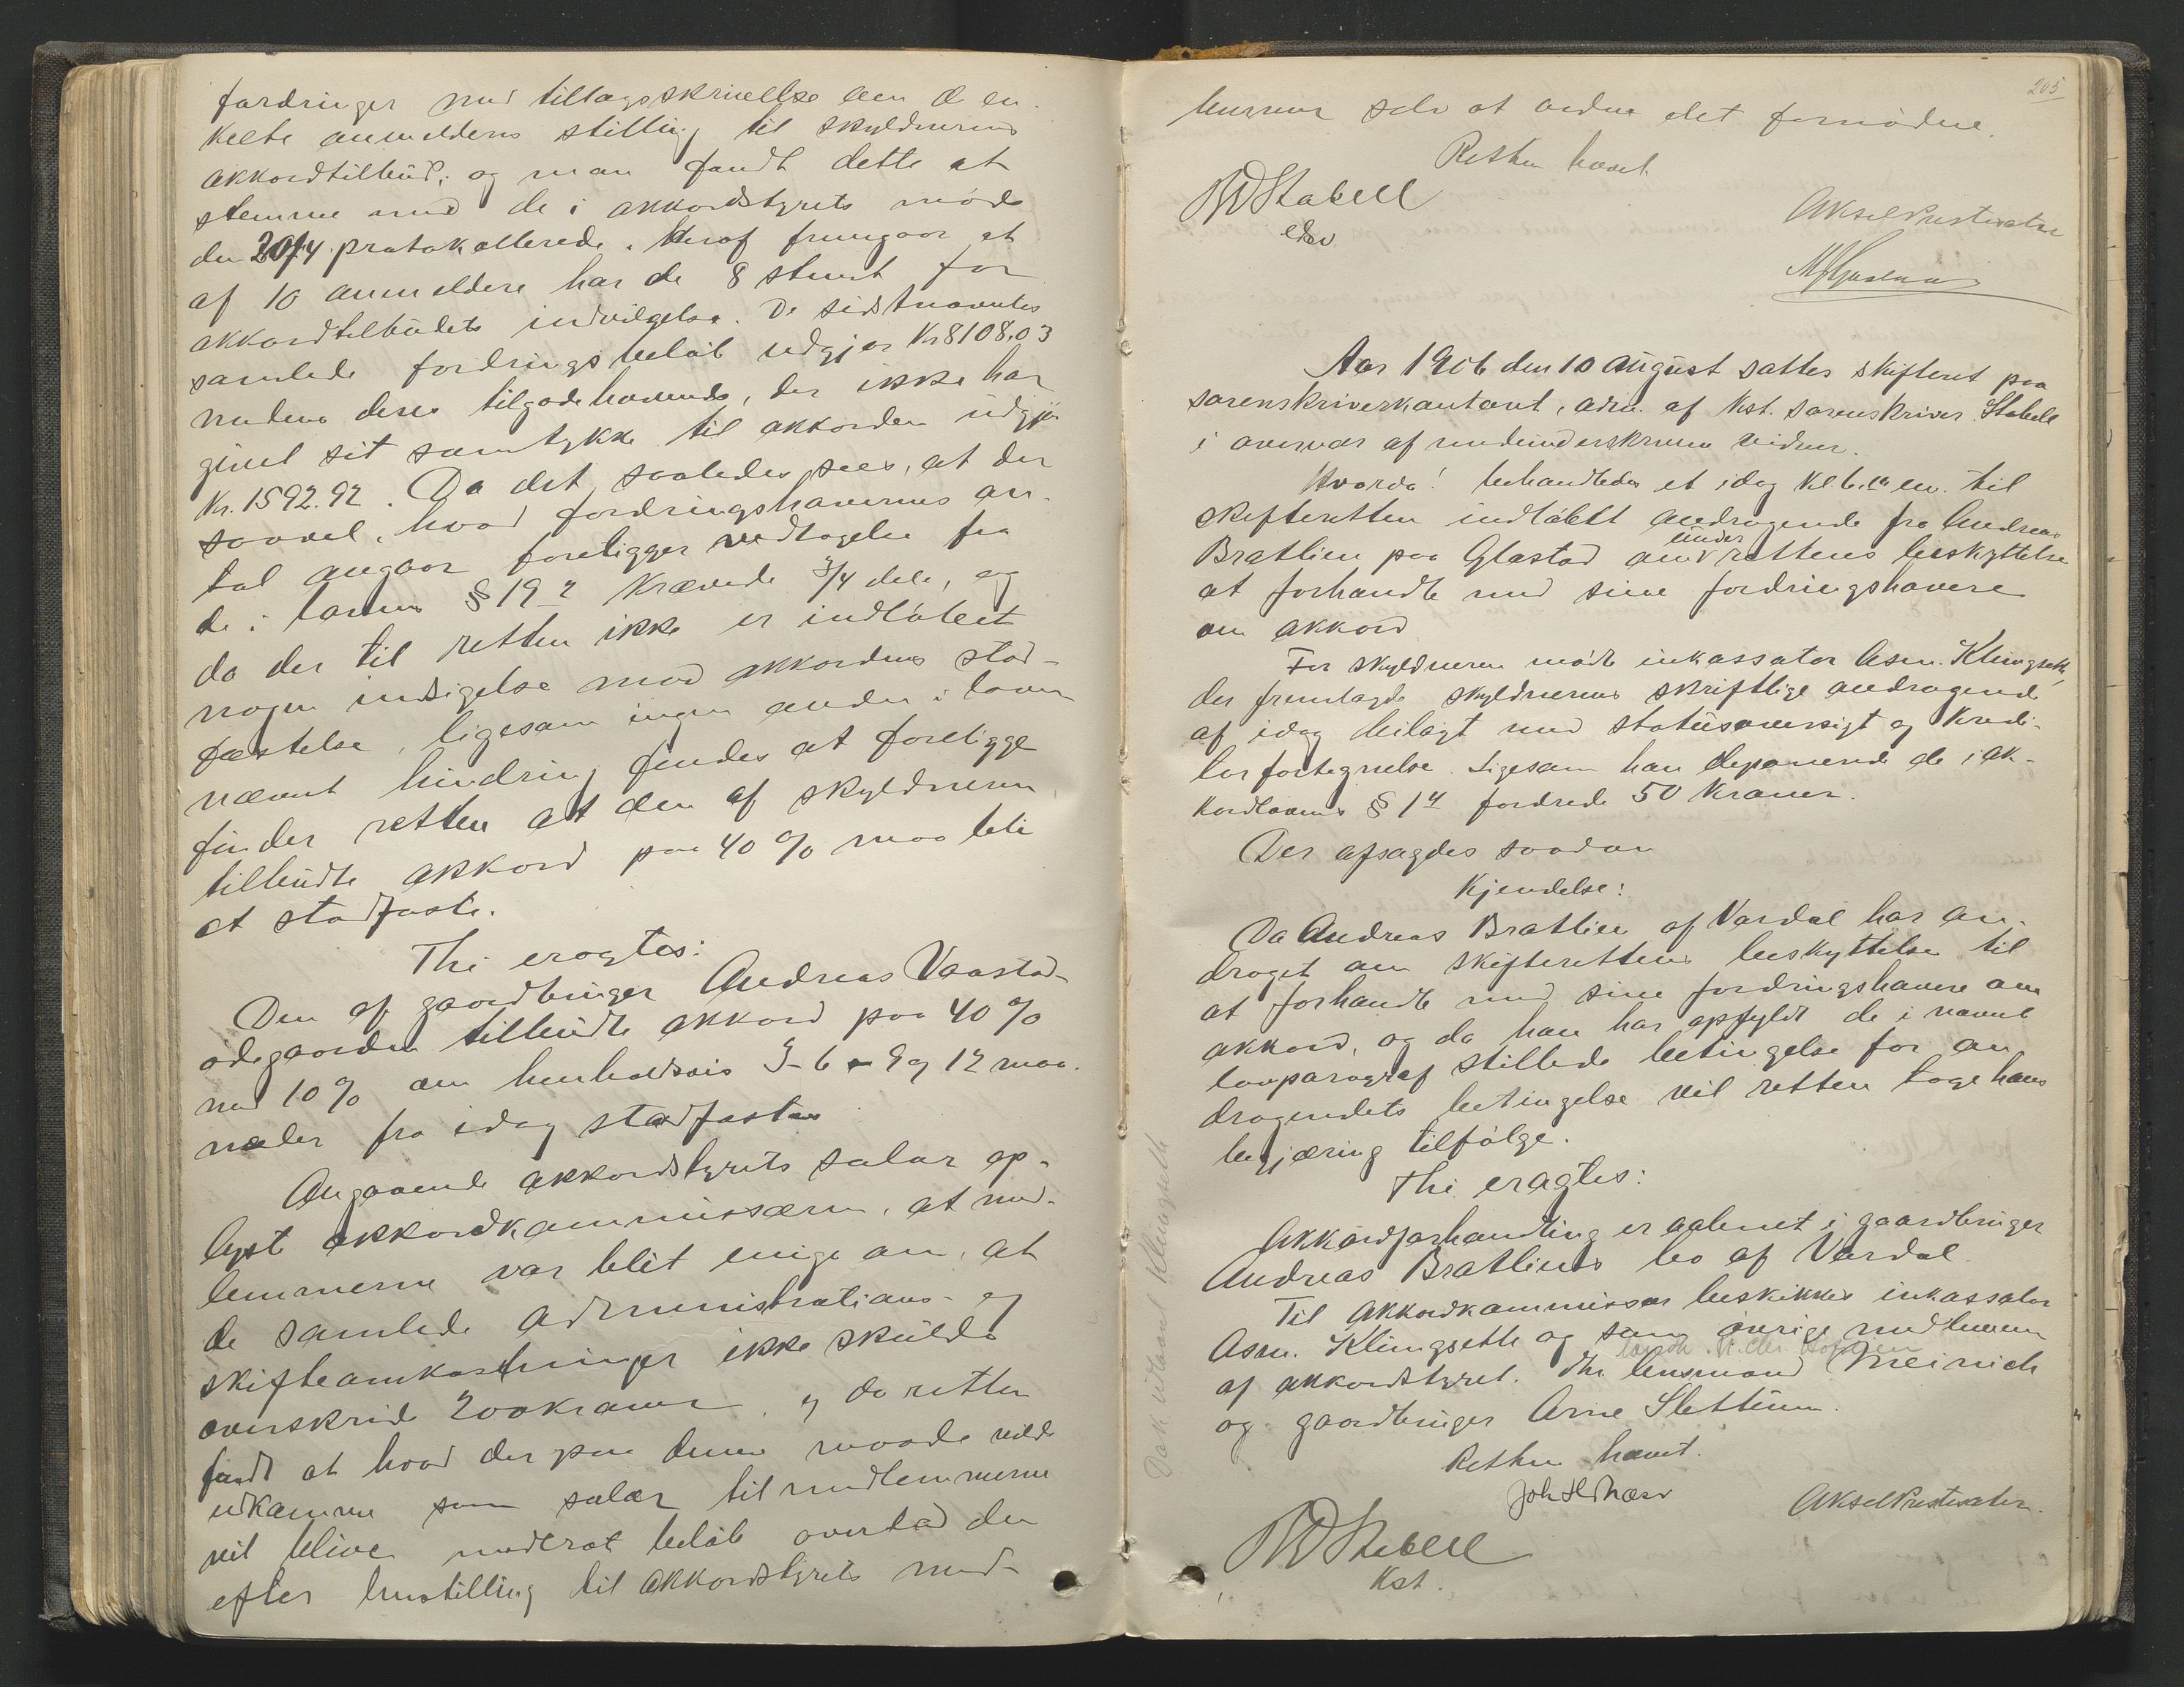 fordringer med tillægsskrivelse om d en-
kelte anmelderes stilling til skyldnerens
akkordtilbud; og man fandt dette at
stemme med de i akkordstyrets møde
den 20/4 protokollerede. Heraf fremgaar at
af 10 anmeldere har de 8 stemt for
akkordtilbudets indvilgelse. De sidstnævntes
samlede fordringsbeløb udgjør Kr 8108.03
medens deres tilgodehavende, der ikke har
givet sit samtykke til akkorden udgjør
Kr. 1592.92. Da det saaledes sees, at der
saavel, hvad fordringshavernes an-
tal angaar foreligger vedtagelse fra
de i lovens § 19 krævede 3/4 dele, og
da der til retten ikke er indløbet
nogen indsigelse mod akkordens stad-
fæstelse, ligesom ingen anden i loven
nævnt hindring findes at foreligge
finder retten at den af skyldneren
tilbudte akkord paa 40 % maa bli
at stadfæste.
Thi eragtes:
Den af gaardbruger Andreas Vaastad-
ødegaarden tilbudte akkord paa 40 %
med 10 % om henholdsvis 3 - 6 - 9 og 12 maa-
neder fra idag stadfæstes
Angaaende akkordstyrets salær op-
lyste akkordkommissæren, at med-
lemmerne var blit enige om, at
de samlede administrations- og
skifteomkostninger ikke skulde
overskride 200 kroner, og da retten
fandt at hvad der paa denne maade vilde
udkomme som salær til medlemmerne
vil blive moderat beløb overlod den
efter henstilling til akkordstyrets med-
205
lemmer selv at ordne det fornødne.
Retten hævet
Stabell
edsv
Aksel Prestesæter
Aar 1906 den 10 august sattes skifteret paa
sorenskriverkontoret, adm. af kst. sorenskriver Stabell
i overvær af medunderskrevne vidner.
Hvorda! behandledes et idag kl. 6. em. til
skifteretten indløbet andragende fra Andreas
under
Bratlien paa Glæstad om rettens beskyttelse
at forhandle med sine fordringshavere
om akkord
For skyldneren mødte inkassator Asm. Klingseth,
der fremlagde skyldnerens skriftlige andragende
af idag bilagt med statusoversigt og kredi-
torfortegnelse. Ligesom han deponerede de i ak-
kordlovens § 1 fordrede 50 kroner.
Der afsagdes saadan
Kjendelse:
Da Andreas Bratlien af Vardal har an-
draget om skifterettens beskyttelse til
at forhandle med sine fordringshavere om
akkord, og da han har opfyldt de i nævnt
lovparagraf stillede betingelse for an-
dragendets betingelse vil retten tage hans
begjæring tilfølge.
Thi eragtes:
Akkordforhandling er aabnet i gaardbruger
Andreas Bratliens bo af Vardal
Til Akkordkommissær beskikkes inkassator
Asm. Klingseth og som øvrige medlemmer
af akkordstyret. Hr. lensmand Meinich
og gaardbruger Arne Slettum.
Retten hævet.
Joh
Aksel Prestesæter.
Stabell
Kst.